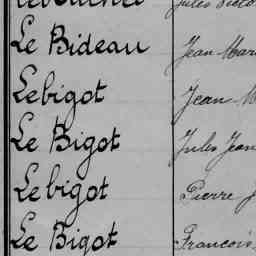 Le Bideau Jean Mar
Lebigot Jean M
Le Bigot Jules Jean
Lebigot Pierre J
Le Bigot François